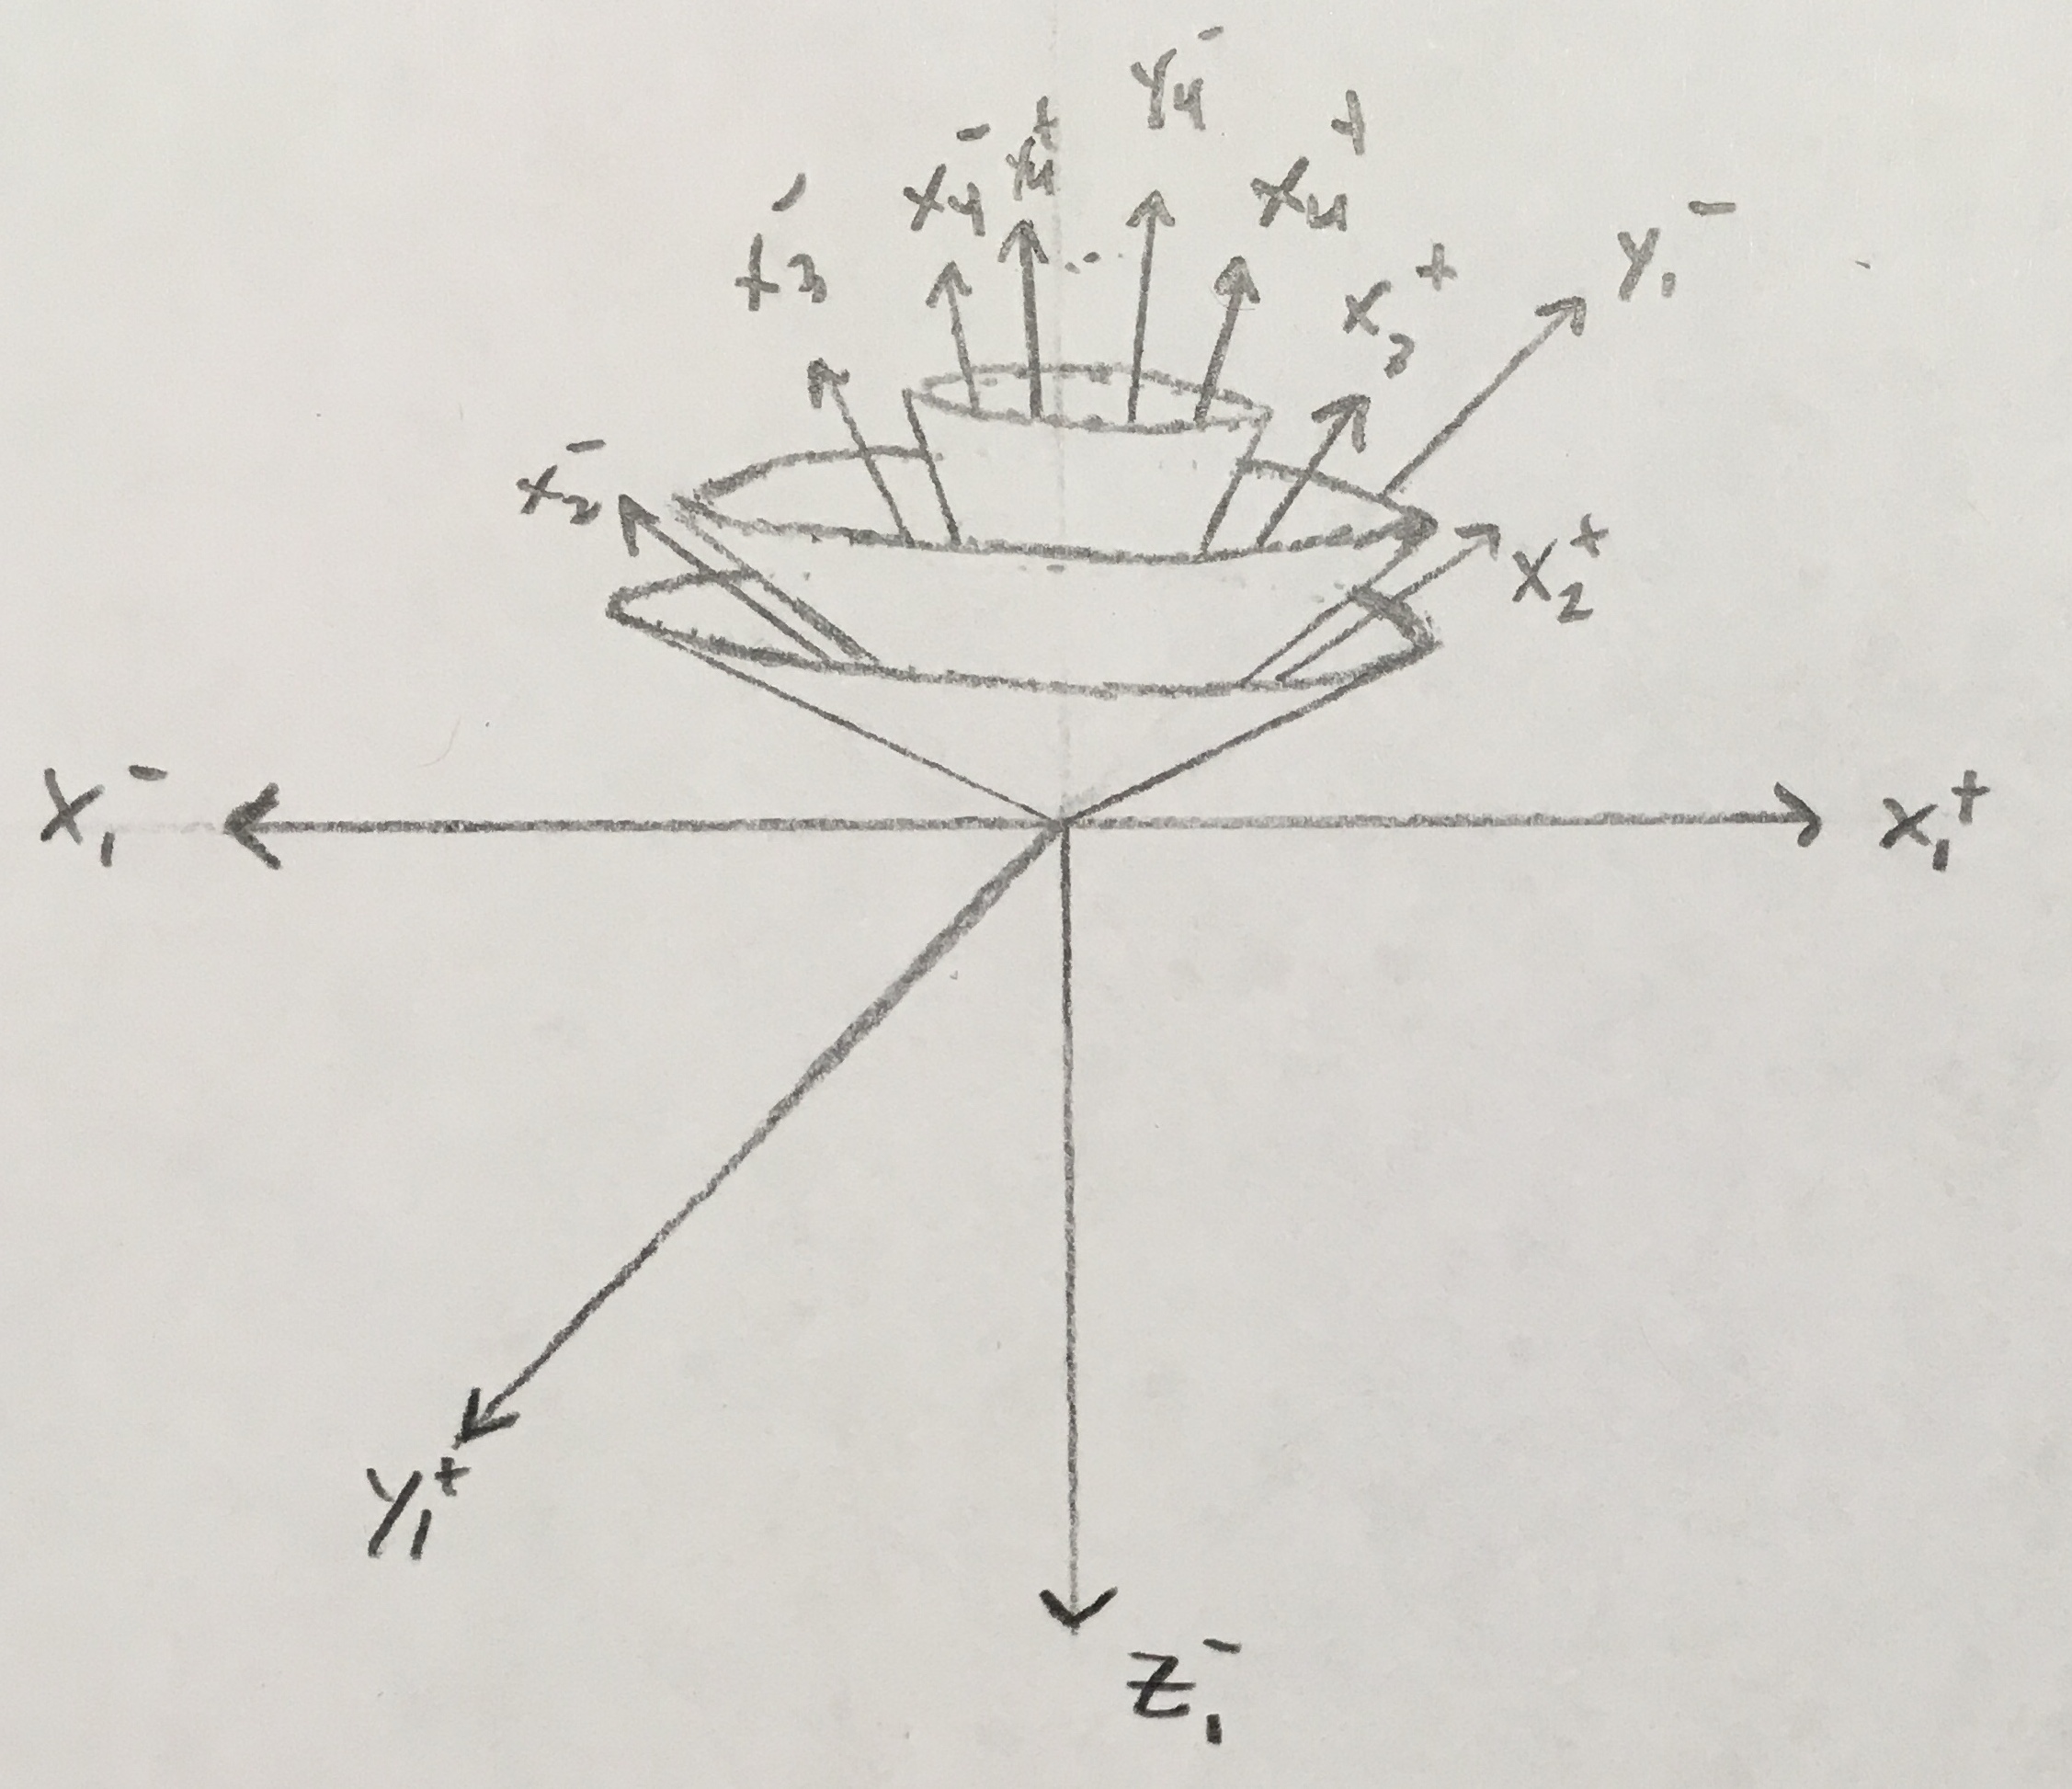 y₄⁻
x₄⁻ y₄⁺ x₄⁺
x₃⁻ x₃⁺ y₁⁻
x₂⁻ x₂⁺
x₁⁻ x₁⁺
y₁⁺
z₁⁻